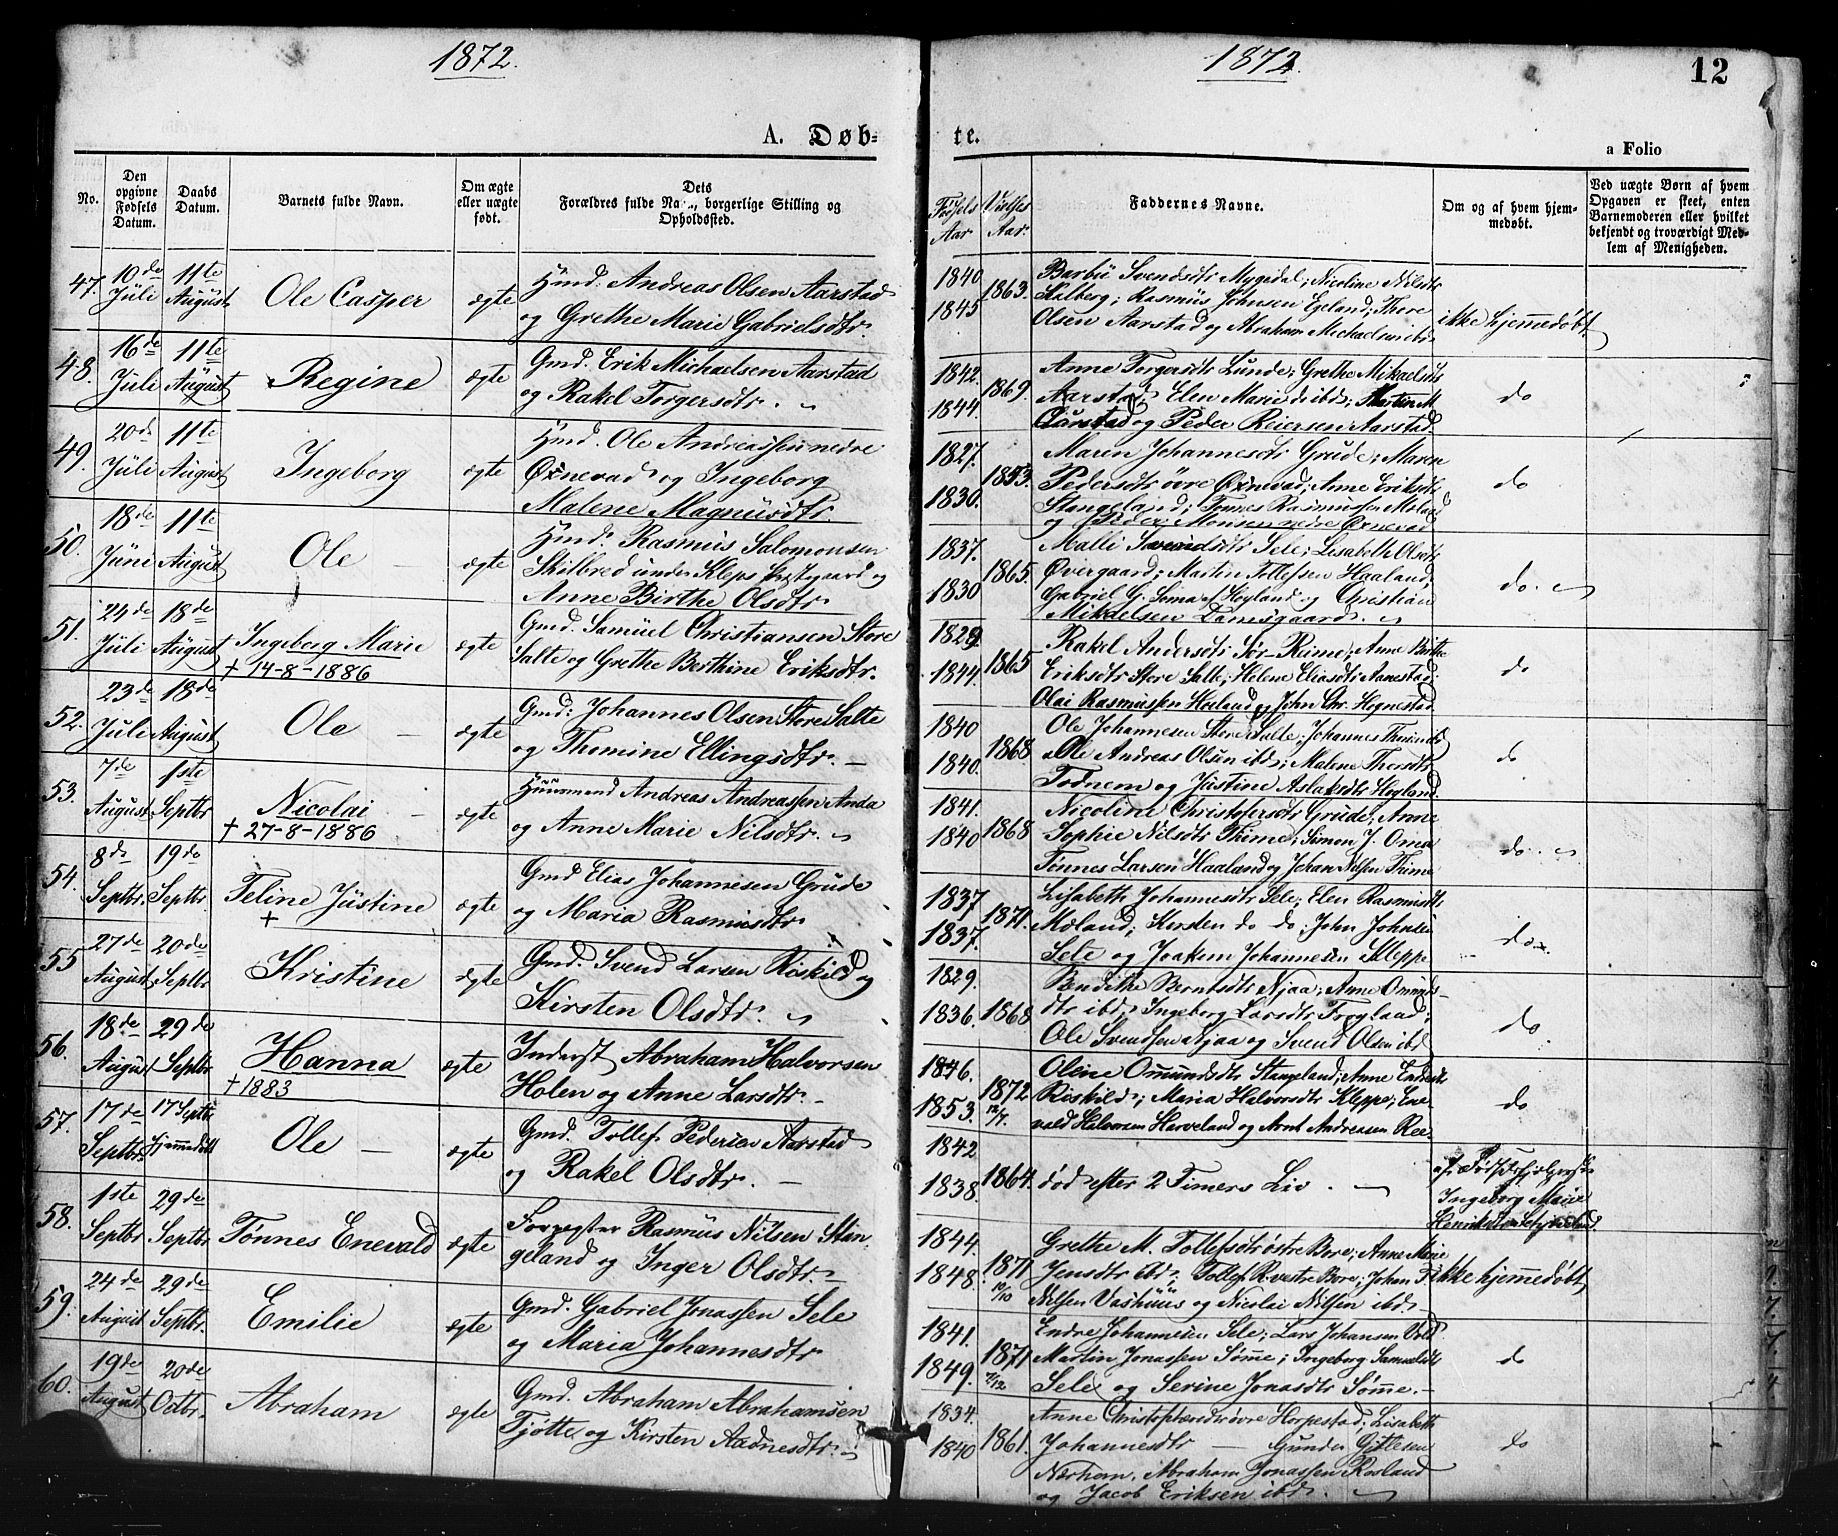 1872.
1872.
12
A. Døb-
te.
a Folio
No.
Den opgivne Fødsels Datum.
Daabs Datum.
Barnets fulde Navn.
Om ægte eller uægte født.
Dets Forældres fulde Navn, borgerlige Stilling og Opholdssted.
Fødsels Aar
Vielses Aar.
Faddernes Navne.
Om og af hvem hjemmedøbt.
Ved uægte Børn af hvem Opgaven er skeet, enten Barnemoderen eller hvilket bekjendt og troværdigt Medlem af Menigheden.
47. 10de Juli 11te August Ole Casper ægte
Hmd. Andreas Olsen Aarstad
og Grethe Marie Gabrielsdtr.
1840 1845 1863.
Barbü Svendsdtr Mygedal; Nicoline Nilsdtr
Kalberg; Rasmus Johnsen Egeland; Thore
Olsen Aarstad og Abraham Michaelsen ibd.
ikke hjemmedøbt
48. 16de Juli 11te August Regine ægte
Gmd. Erik Michaelsen Aarstad
og Rakel Torgersdtr.
1842. 1844. 1869.
Anne Torgersdtr Lunde; Grethe Mikaelsdtr
Aarstad; Elen Marie do ibd; Martin M.
Aarstad og Peder Reiersen Aarstad.
do
49. 20de Juli 11te August Ingeborg ægte
Hmd. Ole Andreassen nedre
Øxnevad og Ingeborg
Malene Magnusdtr.
1827. 1830. 1853.
Maren Johannesdtr Grude; Maren
Pedersdtr øvre Øxnevad; Anne Eriksdtr
Stangeland; Tønnes Rasmussen Meland
og Peder Monsen nedre Øxnevad
do
50. 18de Juni 11te August Ole ægte
Hmd. Rasmus Salomonsen
Skilbred under Kleps Prestgaard og
Anne Birthe Olsdtr.
1837. 1830 1865.
Malli Svendsdtr Sele; Lisabeth Olsdtr
Øvergaard; Martin Tollefsen Haaland
Gabriel G. Soma af Høyland og Christian
Mikaelsen Lamsgaard.
do.
51. 24de Juli 18de August Ingeborg Marie ægte
+ 14-8-1886
Gmd. Samüel Christiansen Store
Salte og Grethe Berthine Eriksdtr.
1829. 1844. 1865
Rakel Andersdtr Sør-Reime; Anne Birthe
Eriksdtr Store Salte; Helene Eliasdtr Aanestad;
Olai Rasmussen Høiland og John Chr. Hognestad.
do
52. 23de Juli 18de August Ole ægte
Gmd: Johannes Olsen Store Salte
og Thomine Ellingsdtr.
1840 1840. 1868
Ole Johannesen Store Salte; Johannes
Ole Andreas Olsen ibd; Malene Thorsdtr
Todnem og Justine Aslaksdtr Høyland.
do
53. 7de August 1ste Septbr Nicolai ægte
+ 27-8-1886
Huusmand Andreas Andreassen Anda
og Anne Marie Nilsdtr.
1841. 1840 1868
Nicoline Christofersdtr Grude; Anne
Sophie Nilsdtr Thime; Simon J. Oma
Tønnes Larsen Haaland og Johan Nilsen Thime
do.
54. 8de Septbr. 19de Septbr. Teline Jüstine ægte
+
Gmd Elias Johannesen Grude
og Maria Rasmusdtr.
1837 1837. 1871.
Lisabeth Johannesdtr Sele; Elen Rasmusdtr
Meland; Kersten do do; John Johnsen
Sele og Joakim Johannesen Kleppe
do
55 27de August 20de Septbr Kristine ægte
Gmd. Svend Larsen Riskild og
Kirsten Olsdtr.
1829. 1836. 1868
Bendikte Berntsdtr Njaa; Anne Omunds-
dtr ibd; Ingeborg Larsdtr Froyland;
Ole Svendsen Njaa og Svend Olsen ibd
do
56. 18de August 29de Septbr Hanna ægte
+ 1883
Inderst Abraham Halvorsen
Holen og Anne Larsdtr.
1846. 1853. 1872 12/7.
Oline Omundsdtr Stangeland; Anne Endresdtr
Riskild; Maria Halvorsdtr Kleppe; Ene-
vald Halvorsen Harveland og Arnt Andreasen Ree.
do
57. 17de Septbr. 17 Septbr hjemmedøbt Ole ægte
Gmd. Tollef Pedersen Aarstad
og Rakel Olsdtr.
1842 1838. 1864.
død efter 2 Timers Liv.
Ingeborg Marie
58. 1ste Septbr 29de Septbr Tønnes Enevald ægte
Forpagter Rasmus Nilsen Stan-
geland og Inger Olsdtr.
1844. 1848. 1871 10/10
Grethe M. Tollefsdtr østre Bore; Anne Marie
Jensdtr ibd; Tollef R. vestre Bore; Johan
Nilsen Vashuus og Nicolai Nilsen ibd.
ikke hjemmedøbt
59. 24de August 29de Septbr. Emilie ægte
Gmd. Gabriel Jonassen Sele
og Maria Johannesdtr
1841. 1849. 1871 7/12
Endre Johannesen Sele; Lars Johansen Vold
Martin Jonassen Sømme; Ingeborg Samuelsdtr
Sele og Serine Jonasdtr Sømme.
do
60. 19de August 20de Octbr. Abraham ægte
Gmd. Abraham Abrahamsen
Tjøtte og Kirsten Aadnesdtr.
1834. 1840 1861.
Anne Christophersdtr øvre Horpestad; Lisabeth
Johannesdtr — Gunder Gitlesen
Nærhem, Abraham Jonassen Rosland
og Jacob Eriksen ibd.
do